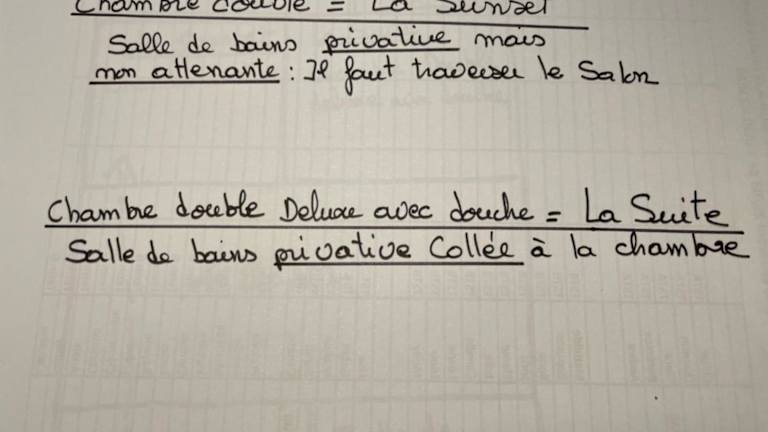 Chambre double = La Sunset
Salle de bains privative mais
non attenante : Il faut traverser le Salon
Chambre double Deluxe avec douche = La Suite
Salle de bains privative Collée à la chambre